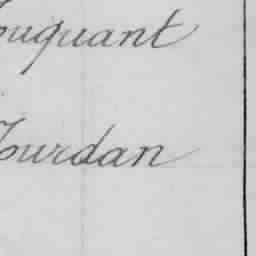 ouquant
Jourdan